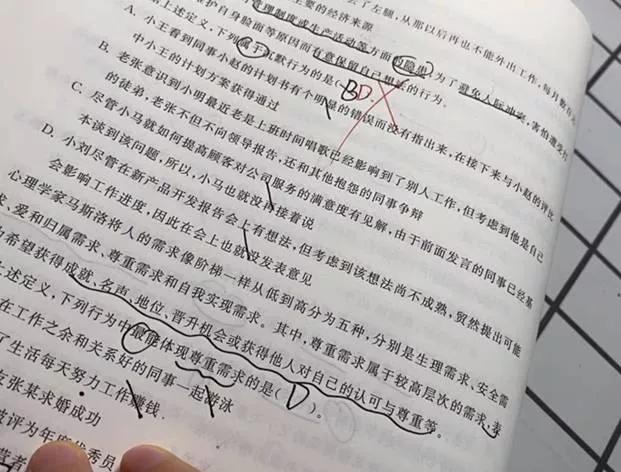 了左腿,从那以后再也不能外出工作,每月
主要的经济来源
管理制度或生产活动等方面的隐患,为了避免人际冲突,害怕遭受
护自身脸面等原因而有意保留自己想法的行为。
上述定义,下列属于沉默行为的是( BD
A. 小王看到同事小赵的计划书有个明显的错误而没有指出来,在接下来与小赵的评比
中小王的计划方案获得通过
B. 老张意识到小明最近老是上班时间唱歌已经影响到了别人工作,但考虑到他是自己
的徒弟,老张不但不向领导报告,还和其他抱怨的同事争辩
C. 尽管小马就如何提高顾客对公司服务的满意度有见解,由于前面发言的同事已经基
本谈到该问题,所以,小马也就没再接着说
D. 小刘尽管在新产品开发报告会上有想法,但考虑到该想法尚不成熟,贸然提出可能
会影响工作进度,因此在会上也就没发表意见
心理学家马斯洛将人的需求像阶梯一样从低到高分为五种,分别是生理需求、安全需
求、爱和归属需求、尊重需求和自我实现需求。其中,尊重需求属于较高层次的需求,表
希望获得成就、名声、地位、晋升机会或获得他人对自己的认可与尊重等。
上述定义,下列行为中最能体现尊重需求的是( D )。
在工作之余和关系好的同事一起游泳
了生活每天努力工作赚钱
张某求婚成功
被评为年度优秀员